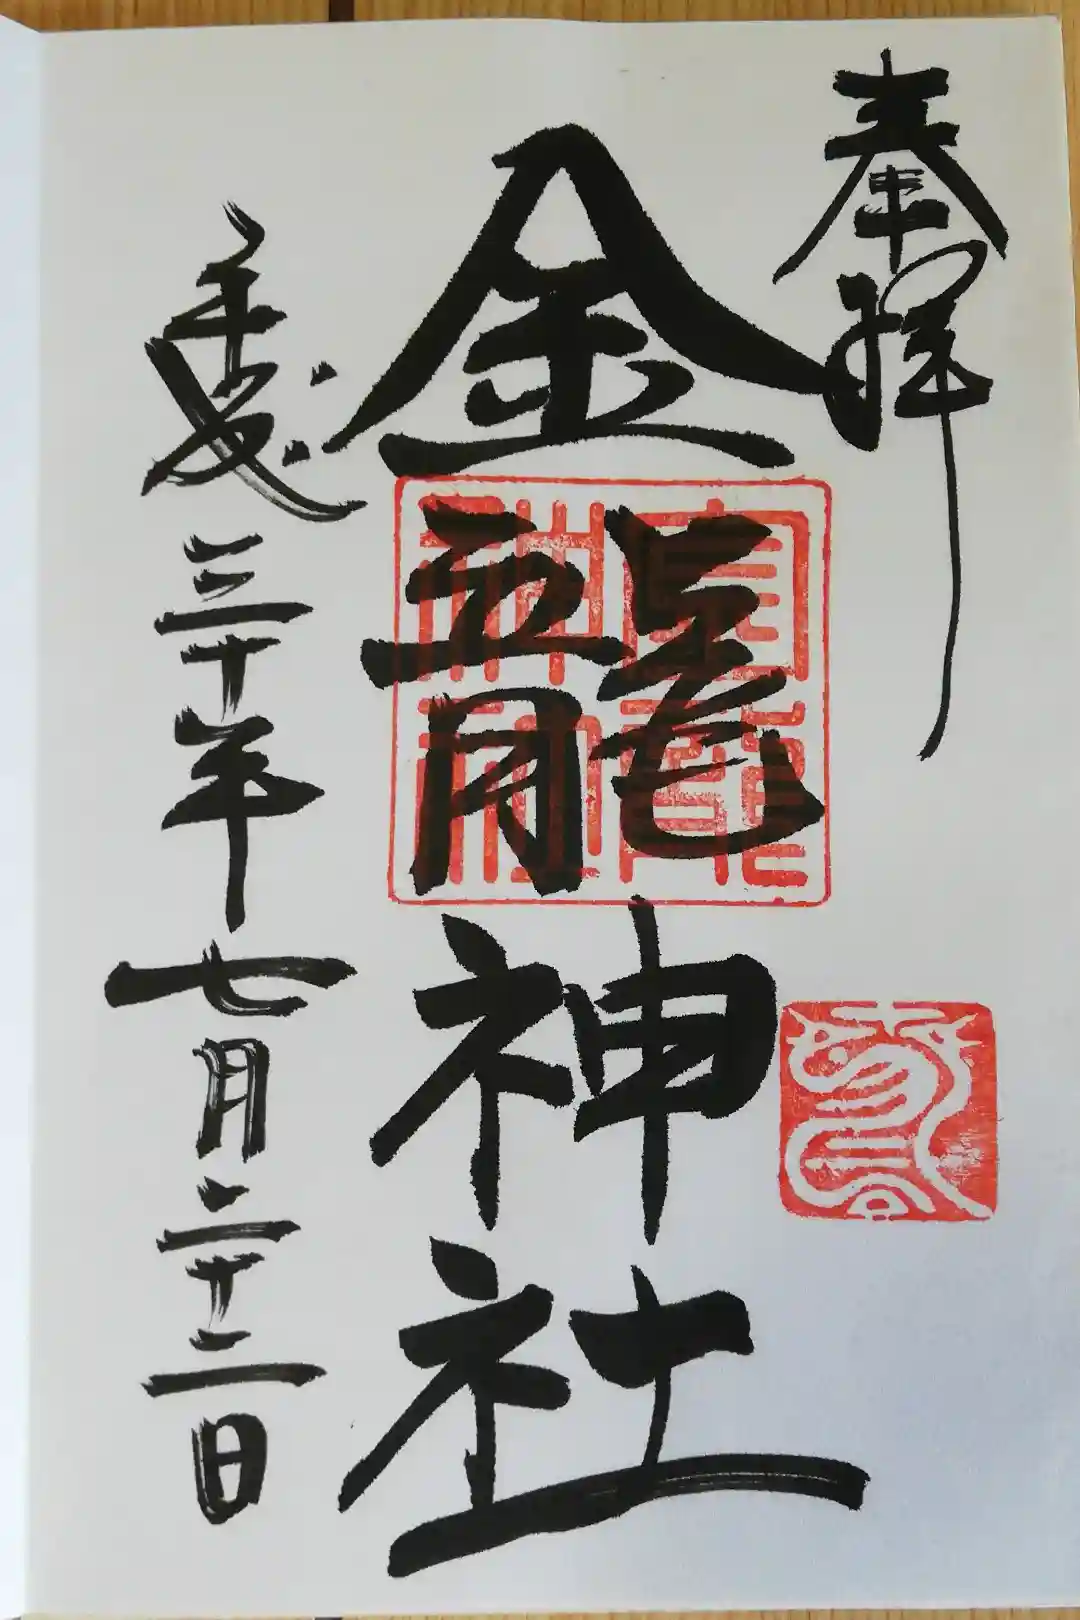 奉拝
金龍神社
平成三十年七月二十二日